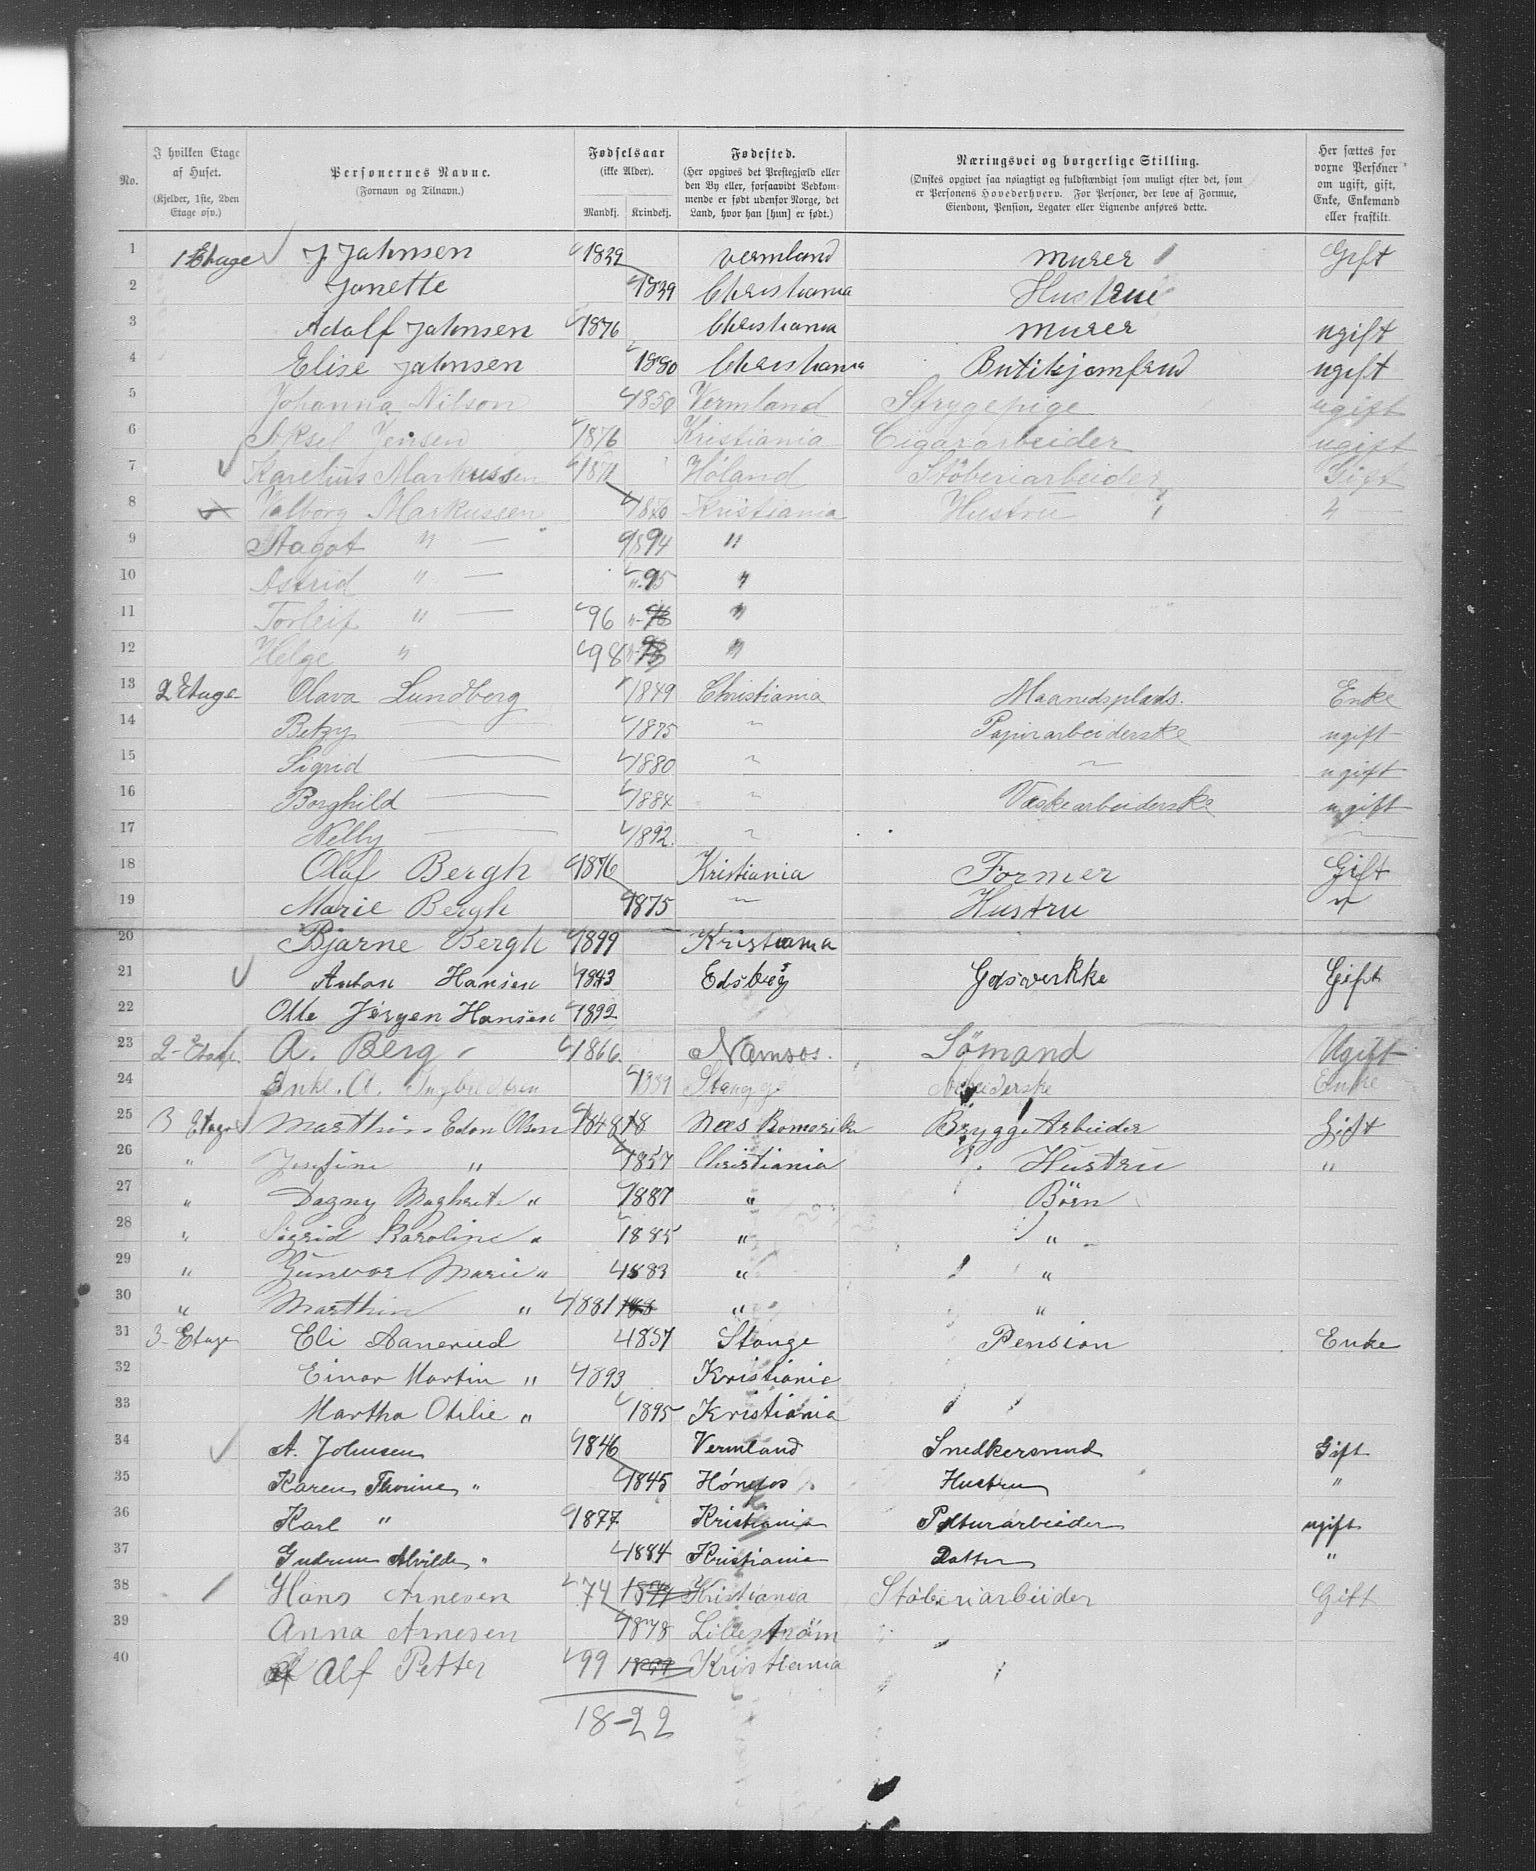 No. I hvilken Etage af Huset. (Kjelder, 1ste, 2den Etage osv.) Personernes Navne. (Fornavn og Tilnavn.) Fødselsaar (ikke Alder). Mandkj. Kvindekj. Fødested. (Her opgives det Prestegjæld eller den By eller, forsaavidt Vedkommende er født udenfor Norge, det Land, hvor han [hun] er født.) Næringsvei og borgerlige Stilling. (Ønskes opgivet saa nøiagtigt og fuldstændigt som muligt efter det, som er Personens Hovederhverv. For Personer, der leve af Formue, Eiendom, Pension, Legater eller Lignende anføres dette. Her sættes for voxne Personer om ugift, gift, Enke, Enkemand eller fraskilt.
1 1 Etage J Jahnsen 1839 vermland murer Gift
2 Janette 1839 Christiania Hustrue
3 Adolf Jahnsen 1876 Christiania murer ugift
4 Elise Jahnsen 1880 Christiania Butikjomfrud ugift
5 Johanna Nilson 1850 Vermland Strygepige ugift
6 Aksel Jensen 1876 Kristiania Cigararbeider ugift
7 Karelius Markussen 1871 Høland Støberiarbeider Gift
8 Valborg Markussen 1870 Kristiania Hustru "
9 Aagot " — 1894 "
10 Astrid " — 95 "
11 Torleif " — 96 "
12 Helge " 98 "
13 2 Etage Olava Lundberg 1849 Christiania Maanedsplads. Enke
14 Betzy — 1875 " Papirarbeiderske ugift
15 Sigrid — 1880 " " ugift
16 Borghild — 1884 " Væskearbeiderske ugift
17 Nelly — 1892. "
18 Olaf Bergh 1876 Kristiania Former Gift
19 Marie Bergh 1875 " Hustru "
20 Bjarne Bergh 1899 Kristiania
21 Anton Hansen 1843 Edsberg Gasverkke Gift
22 Otto Jørgen Hansen 1892
23 2 - Etage A. Berg 1866. Namsos. Sömand Ugift
24 Enke. A. Stange Arbeiderske Enke
25 3 Etage Marthin Edon Olsen 1848 Næs Romerike Brygge Arbeider Gift
26 " Josefine " 1857 Christiania Hustru "
27 " Dagny Maghrete " 1887 " Börn
28 " Sigrid Karoline " 1885 " "
29 " Gunvor Marie " 1883 " "
30 " Marthin " 1881 " "
31 3 - Etage Eli Aanerud 1857 Stange Pension Enke
32 Einar Martin " 1893 Kristiania
33 Martha Otilie " 1895 Kristiania
34 A. Johnsen 1846 Vermland Snedkersvend Gift
35 Karen Thorine " 1845 Hustru "
36 Karl " 1877 Kristiania Polturarbeider ugift
37 Gudrun Alvilde " 1884 Kristiania Datter "
38 Hans Arnesen 74 Kristiania Støberiarbeider Gift
39 Anna Arnesen 1878 Lillestrøm
40 Alf Petter 99 Kristiania
18-22